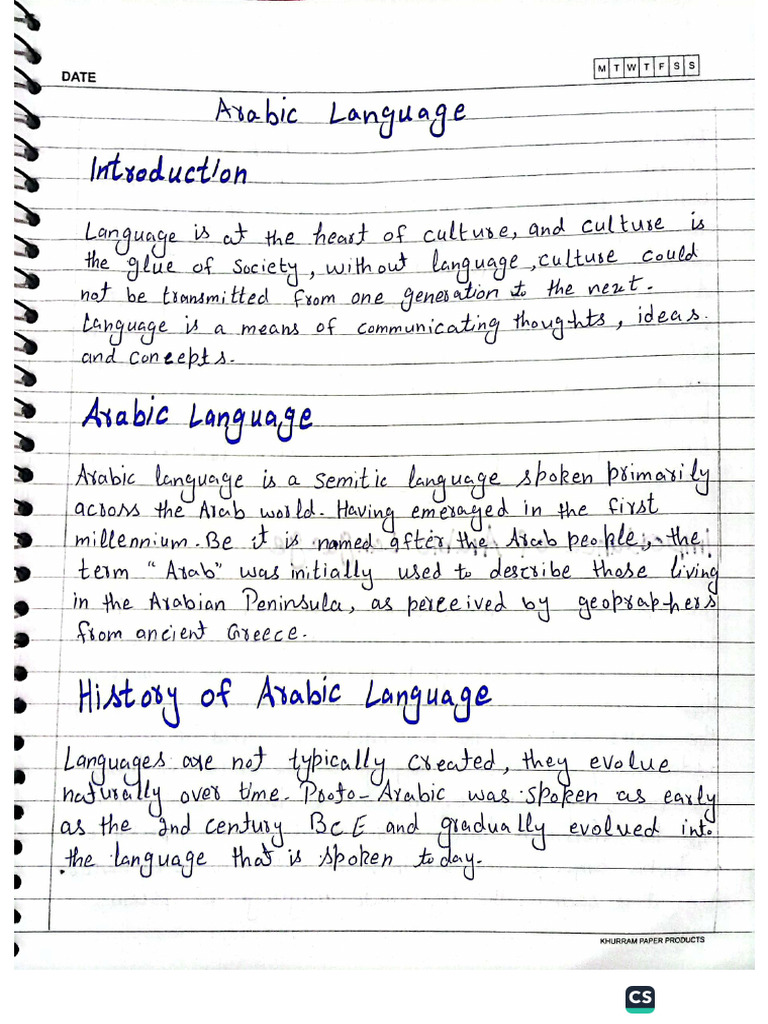 DATE
M T W T F S S
Arabic Language
Introduction
Language is at the heart of culture, and culture is
the glue of society, without language, culture could
not be transmitted from one generation to the next.
Language is a means of communicating thoughts, ideas.
and concepts.
Arabic Language
Arabic language is a semitic language spoken primarily
across the Arab world. Having emeraged in the first
millennium. Be it is named after the Arab people, the
term "Arab" was initially used to describe those living
in the Arabian Peninsula, as perceived by geopraphers
from ancient Greece.
History of Arabic Language
Languages are not typically created, they evolve
naturally over time. Proto-Arabic was spoken as early
as the 2nd century BCE and gradually evolved into
the language that is spoken today.
KHURRAM PAPER PRODUCTS
CS